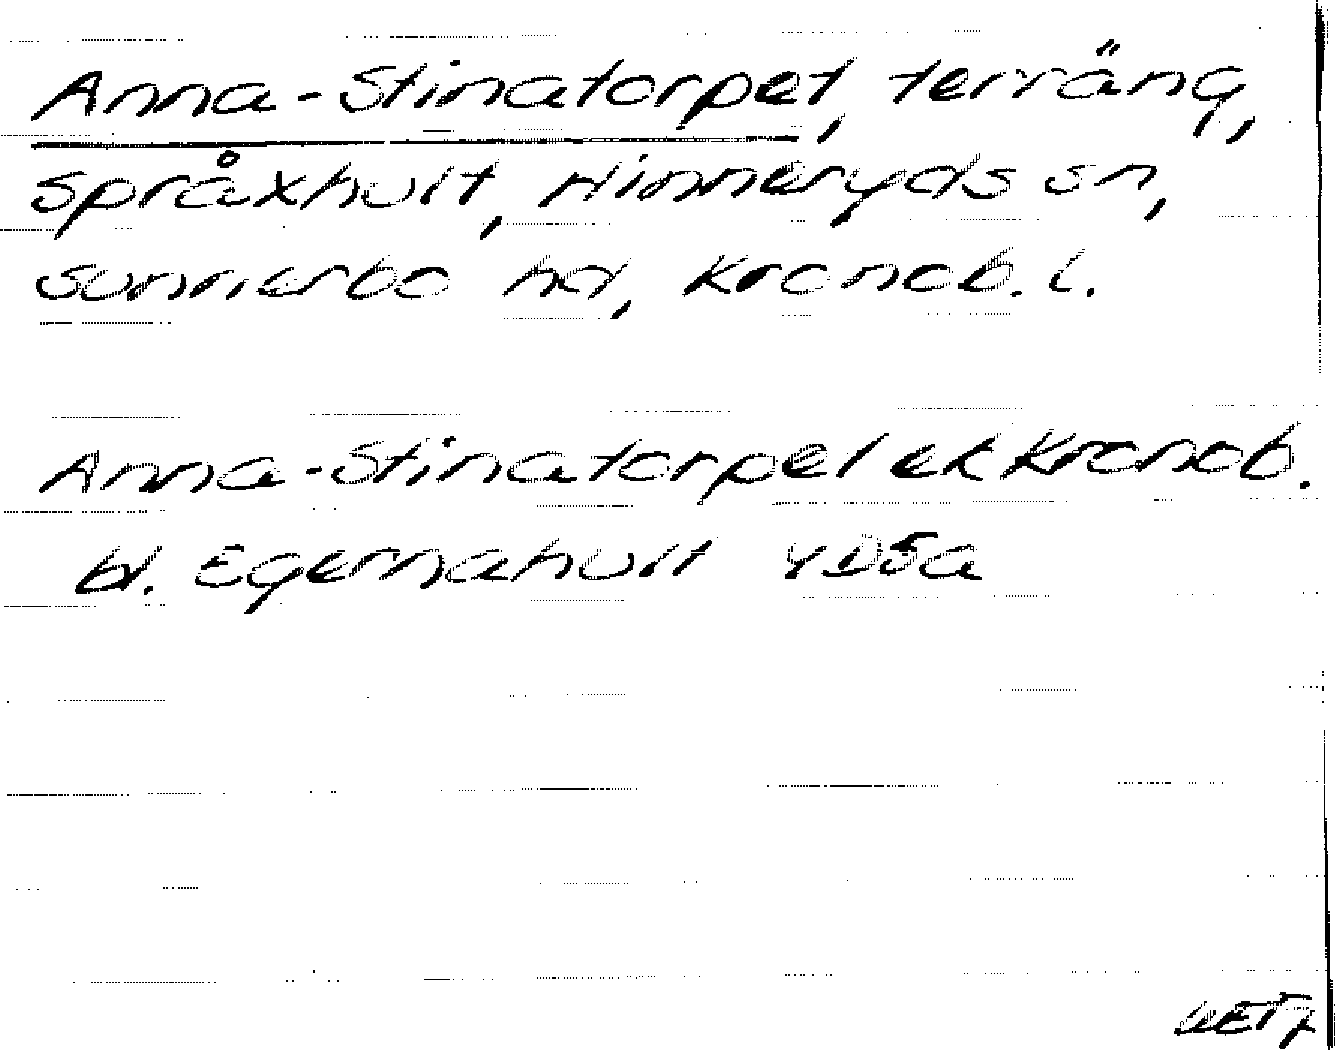 Anna-Stinatorpet, terräng,
Språxhult, Hinneryds sn,
Sunnerbo hd, Kronob. l.
Anna-Stinatorpet ek Kronob.
bl. Egernahult 4D5a